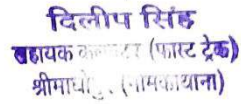 दिलीप सिंह
सहायक कलक्टर (फास्ट ट्रेक)
श्रीमाधोपुर (नीमकाथाना)